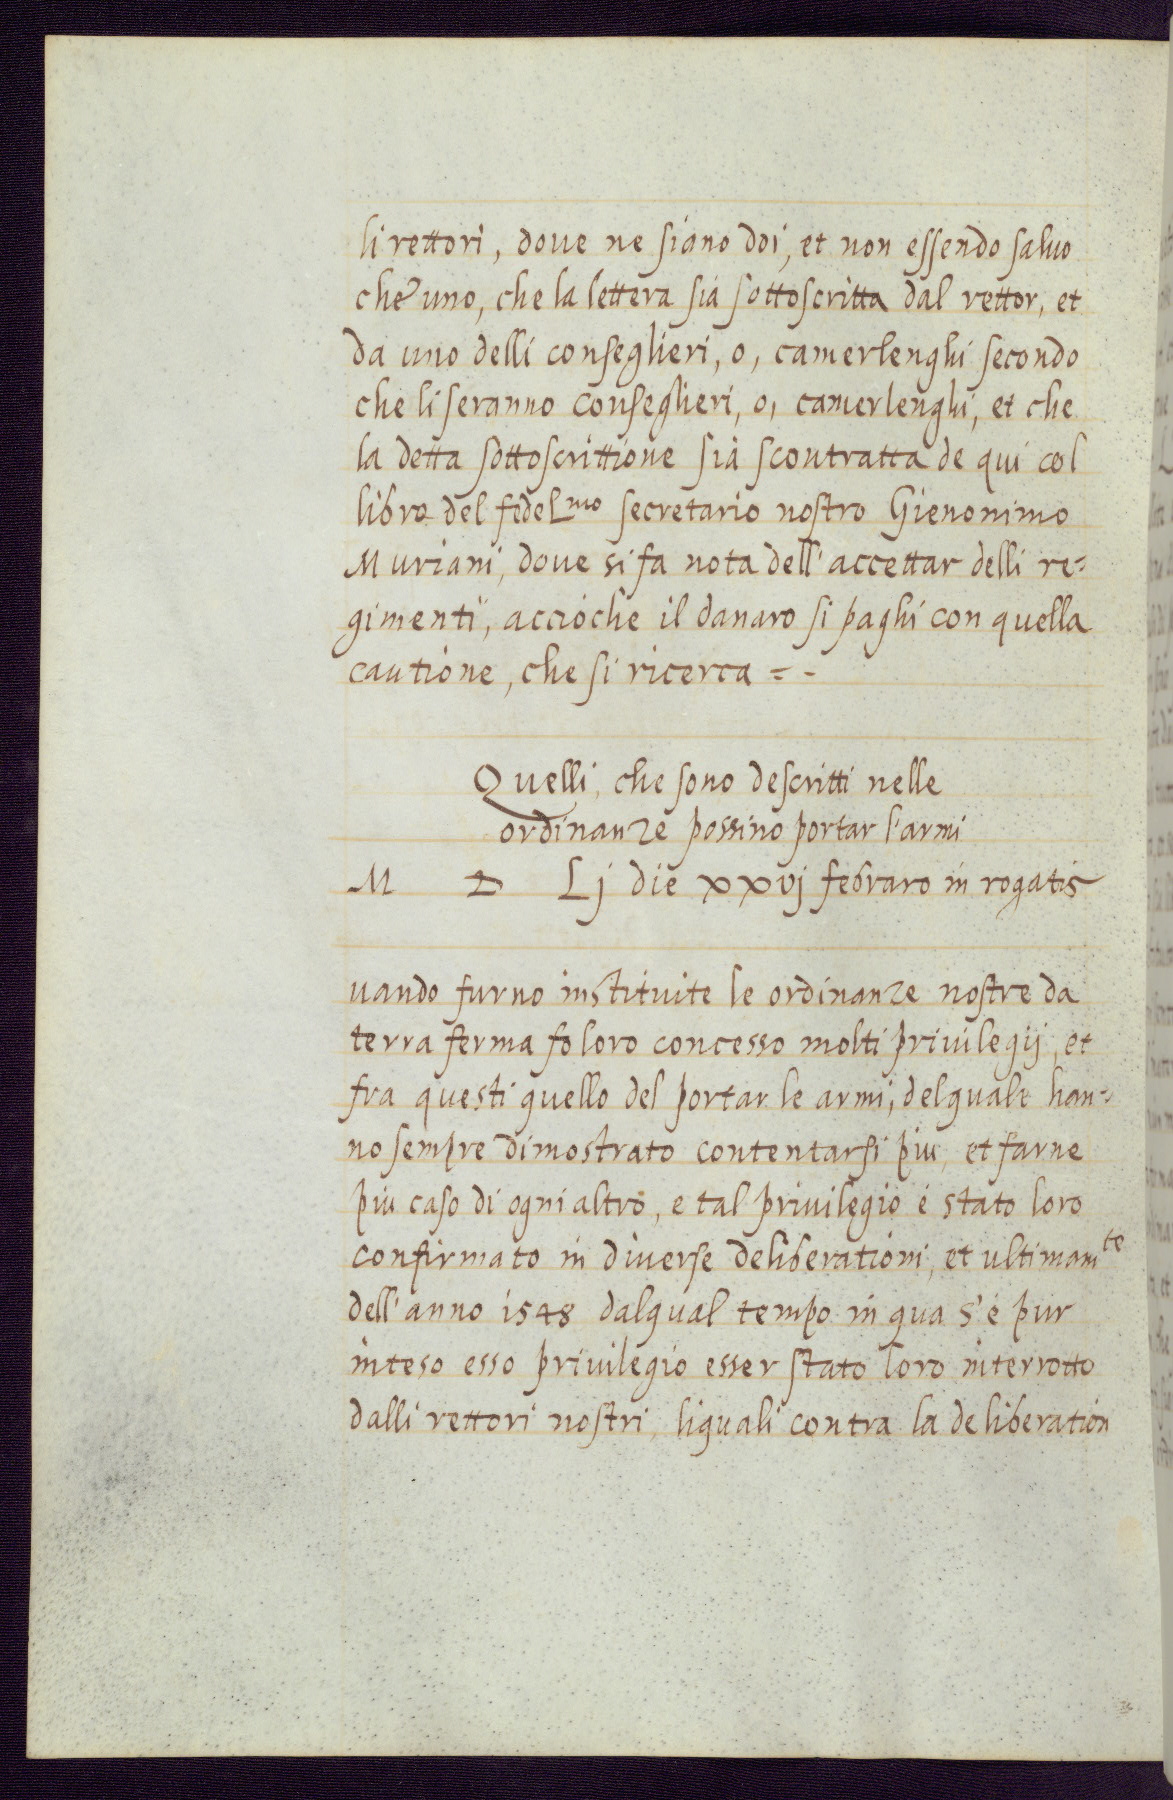 li rettori, doue ne siano doi, et non essendo saluo
che uno, che la lettera sia sottoscritta dal rettor, et
da uno delli conseglieri, o, camerlenghi secondo
che li seranno conseglieri, o, camerlenghi, et che
la detta sottoscrittione sia scontratta de qui col
libro del fedelmo secretario nostro Gieronimo
Muriani, doue si fa nota dell'accettar delli re=
gimenti, accioche il danaro si paghi con quella
cautione, che si ricerca = -
Quelli, che sono descritti nelle
ordinanze possino portar l'armi
M D Lj die xxvj febraro in rogatis
uando furno instituite le ordinanze nostre da
terra ferma fo loro concesso molti priuilegij, et
fra questi quello del portar le armi, delquale han=
no sempre dimostrato contentarsi piu, et farne
piu caso di ogni altro, e tal priuilegio é stato loro
confirmato in diuerse deliberationi, et ultimamte
dell'anno 1548 dalqual tempo in qua s'é pur
inteso esso priuilegio esser stato loro interrotto
dalli rettori nostri, liquali contra la deliberation